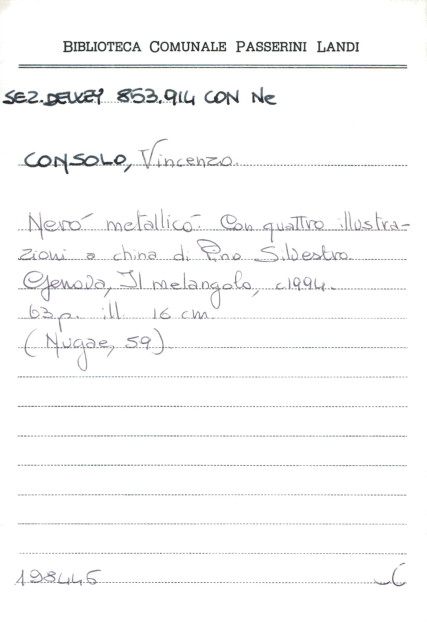 BIBLIOTECA COMUNALE PASSERINI LANDI
SEZ. DEWEY 853.914 CON Ne
CONSOLO, Vincenzo
Nerò metallicò. Con quattro illustra-
zioni a china di Pino Silvestro.
Genova, Il melangolo, c1994.
63 p. ill. 16 cm.
(Nugae, 59)
198445